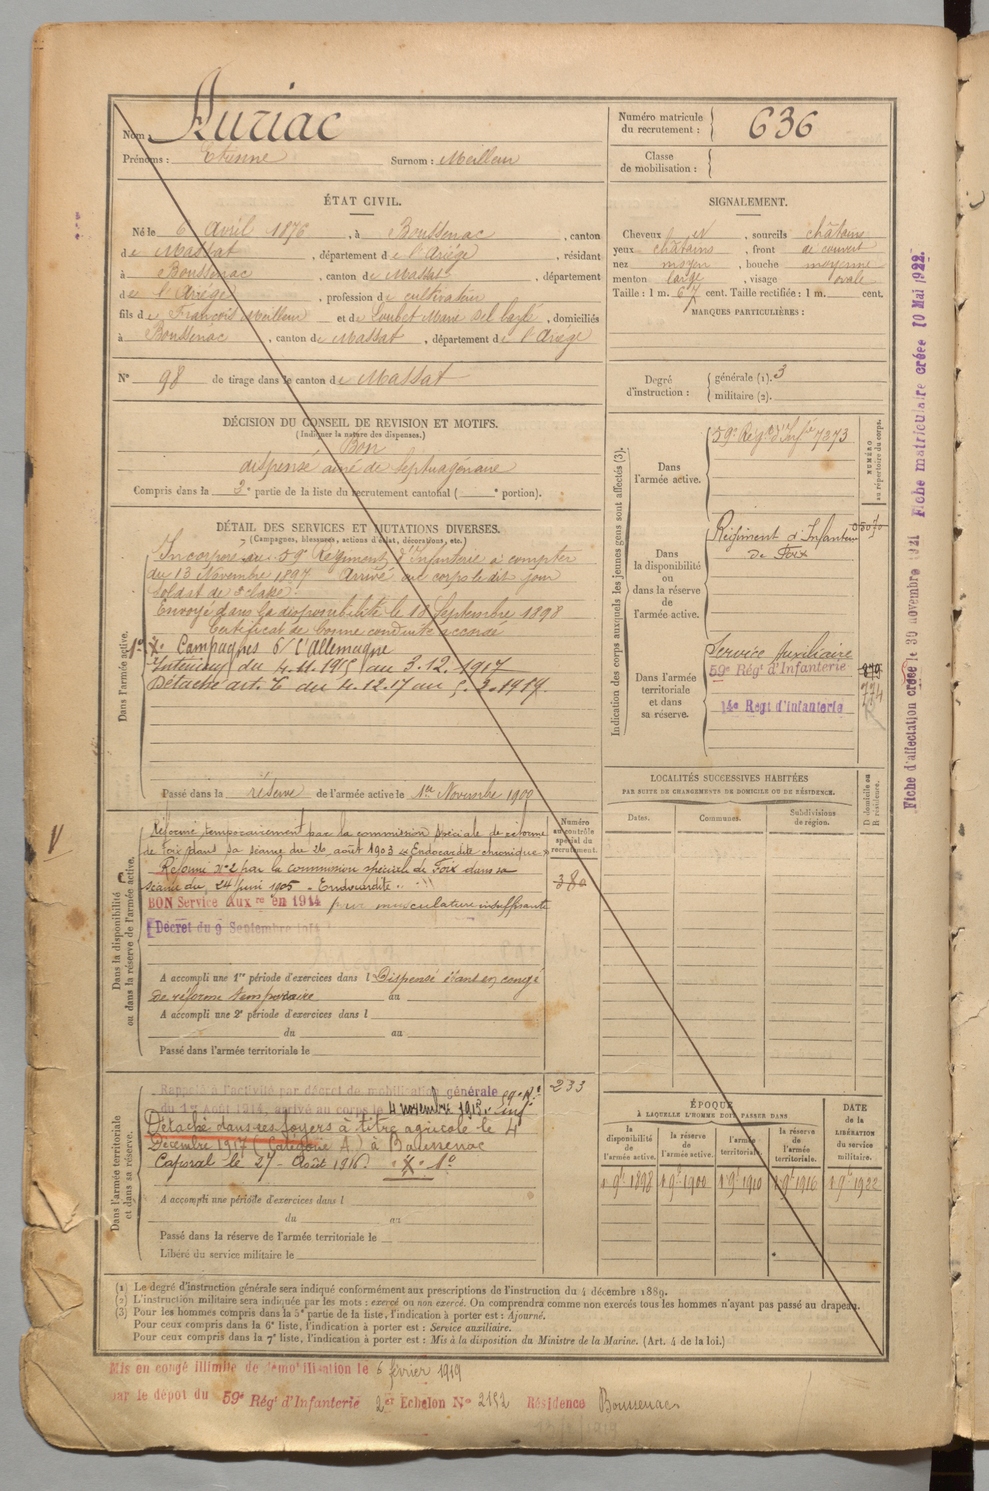 Nom : Auriac
Prénoms : Etienne Surnom : Meilleur
Numéro matricule du recrutement : 636
Classe de mobilisation :
ÉTAT CIVIL.
Né le 6 Avril 1876, à Boussenac, canton
de Massat, département de l'Ariège, résidant
à Boussenac, canton de Massat, département
de l'Ariège, profession de cultivateur
fils de François Meilleur et de Loubet Marie, domiciliés
à Boussenac, canton de Massat, département de l'Ariège
N° 98 de tirage dans le canton de Massat
SIGNALEMENT.
Cheveux et, sourcils châtains
yeux châtains, front de couvert
nez moyen, bouche moyenne
menton large, visage ovale
Taille : 1 m. 67 cent. Taille rectifiée : 1 m. cent.
MARQUES PARTICULIÈRES :
Degré d'instruction : générale (1). 3
militaire (2).
DÉCISION DU CONSEIL DE REVISION ET MOTIFS.
(Indiquer la nature des dispenses.)
Bon
dispensé ainé de septuagénaire
Compris dans la 2e partie de la liste du recrutement cantonal ( e portion).
DÉTAIL DES SERVICES ET MUTATIONS DIVERSES.
(Campagnes, blessures, actions d'éclat, décorations, etc.)
Dans l'armée active.
Incorporé au 59e Régiment d'Infanterie à compter
du 13 Novembre 1897 Arrivé au corps le dit jour
Soldat de 2e classe.
Envoyé dans la disponibilité le 18 Septembre 1898
Certificat de bonne conduite accordé
1° X° Campagnes C/ l'Allemagne
Intérieur du 4.11.1915 au 3.12.1917
Détaché art. 6 du 4.12.17 au 5.2.1919
Passé dans la réserve de l'armée active le 1er Novembre 1900
Dans la disponibilité ou dans la réserve de l'armée active.
Réformé temporairement par la commission spéciale de réforme
de Foix dans sa séance du 26 août 1903 « Endocardite chronique »
Réformé N°2 par la commission spéciale de Foix dans sa
séance du 24 juin 1905 « Endocardite »
BON Service Auxre en 1914 pour musculature insuffisante
Décret du 9 Septembre 1914
Numéro au contrôle spécial du recrutement.
380
A accompli une 1re période d'exercices dans l Dispensé étant en congé
de réforme temporaire au
A accompli une 2e période d'exercices dans l
du au
Passé dans l'armée territoriale le
Dans l'armée territoriale et dans sa réserve.
Rappelé à l'activité par décret de mobilisation générale 59e Rt
du 1er Août 1914, arrivé au corps le 4 novembre 1915. Infie
Détaché dans ses foyers à titre agricole le 4
Décembre 1917 (Catégorie A) à Boussenac
Caporal le 27 Août 1916 X° 1°
233
A accompli une période d'exercices dans l
du au
Passé dans la réserve de l'armée territoriale le
Libéré du service militaire le
Indication des corps auxquels les jeunes gens sont affectés (3).
Dans l'armée active.
59e Régt d'Infie 7373
NUMÉRO au répertoire du corps.
Dans la disponibilité ou dans la réserve de l'armée active.
Régiment d'Infanterie
de Foix
Dans l'armée territoriale et dans sa réserve.
Service Auxiliaire
59e Régt d'Infanterie
14e Régt d'Infanterie
LOCALITÉS SUCCESSIVES HABITÉES
PAR SUITE DE CHANGEMENTS DE DOMICILE OU DE RÉSIDENCE.
Dates. Communes. Subdivisions de région. D domicile ou R résidence.
ÉPOQUE
À LAQUELLE L'HOMME DOIT PASSER DANS
la disponibilité de l'armée active. la réserve de l'armée active. l'armée territoriale. la réserve de l'armée territoriale.
DATE de la LIBÉRATION du service militaire.
1 9bre 1898 1 9bre 1900 1 9bre 1910 1 9bre 1916 1 9bre 1922
(1) Le degré d'instruction générale sera indiqué conformément aux prescriptions de l'instruction du 4 décembre 1889.
(2) L'instruction militaire sera indiquée par les mots : exercé ou non exercé. On comprendra comme non exercés tous les hommes n'ayant pas passé au drapeau.
(3) Pour les hommes compris dans la 5e partie de la liste, l'indication à porter est : Ajourné.
Pour ceux compris dans la 6e liste, l'indication à porter est : Service auxiliaire.
Pour ceux compris dans la 7e liste, l'indication à porter est : Mis à la disposition du Ministre de la Marine. (Art. 4 de la loi.)
Mis en congé illimité de démobilisation le 5 février 1919
par le dépôt du 59e Régt d'Infanterie 2er Echelon N° 2152 Résidence Boussenac
Fiche d'affectation créée le 30 novembre 1921 Fiche matriculaire créée 10 Mai 1922.